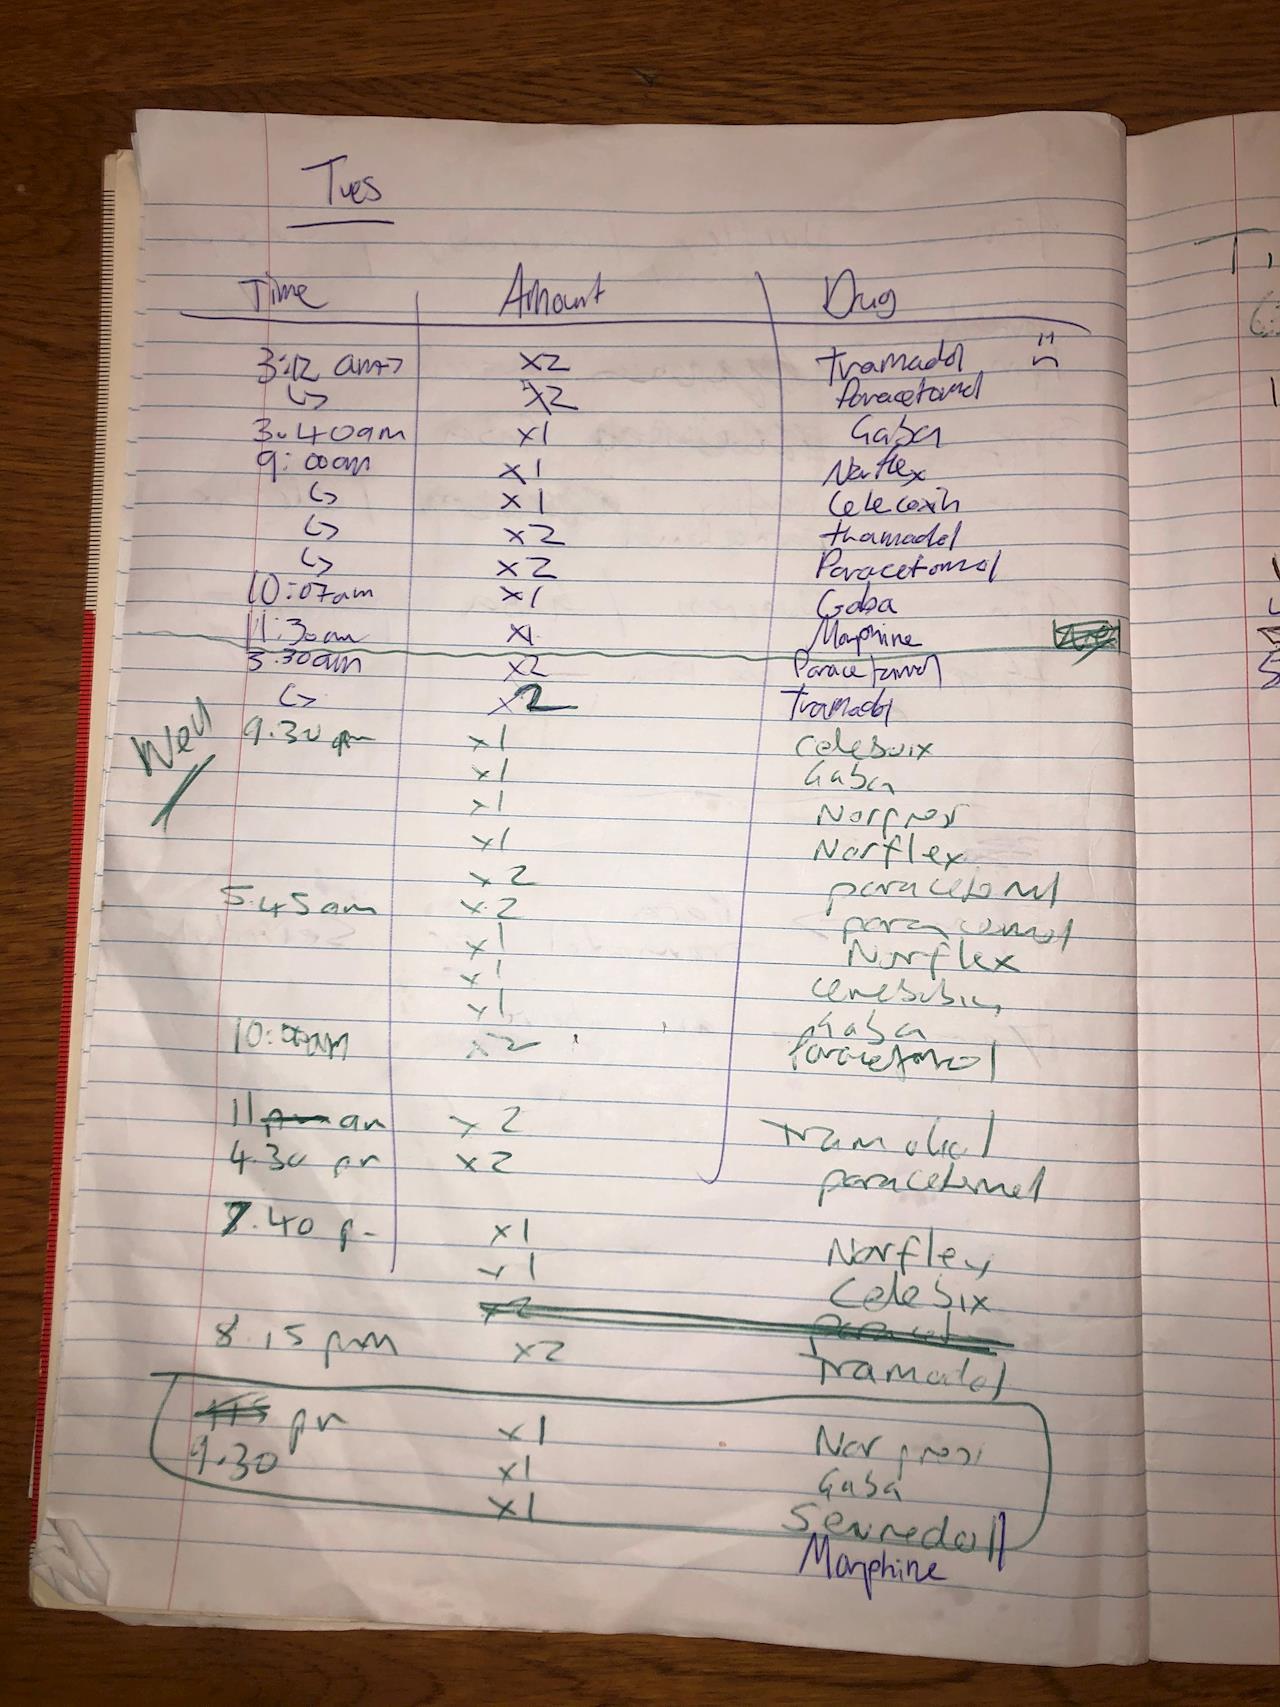 Tues
Time Amount Drug
3:12 am x2 Tramadol
↳ x2 Paracetamol
3.40am x1 Gaba
9:00am x1 Norflex
↳ x1 Celecoxib
↳ x2 tramadol
↳ x2 Paracetomol
10:07am x1 Gaba
11:30am x1 Morphine
3.30am x2 Paracetamol
↳ x2 Tramadol
Wed
9.30 pm x1 celebuix
x1 Gaba
x1 Norpress
x1 Norflex
x2 paracetomol
5.45am x2
x1 Norflex
x1
x1 Gaba
10:00am x2 Paracetomol
11 pm am x2 Tramadol
4.30 pm x2 paracetemol
7.40 p- x1 Norflex
x1 Celebix
x2 paracet
8.15 pm x2 Tramadol
pm x1 Norpress
9.30 x1 Gaba
x1 Sennedoll
Morphine